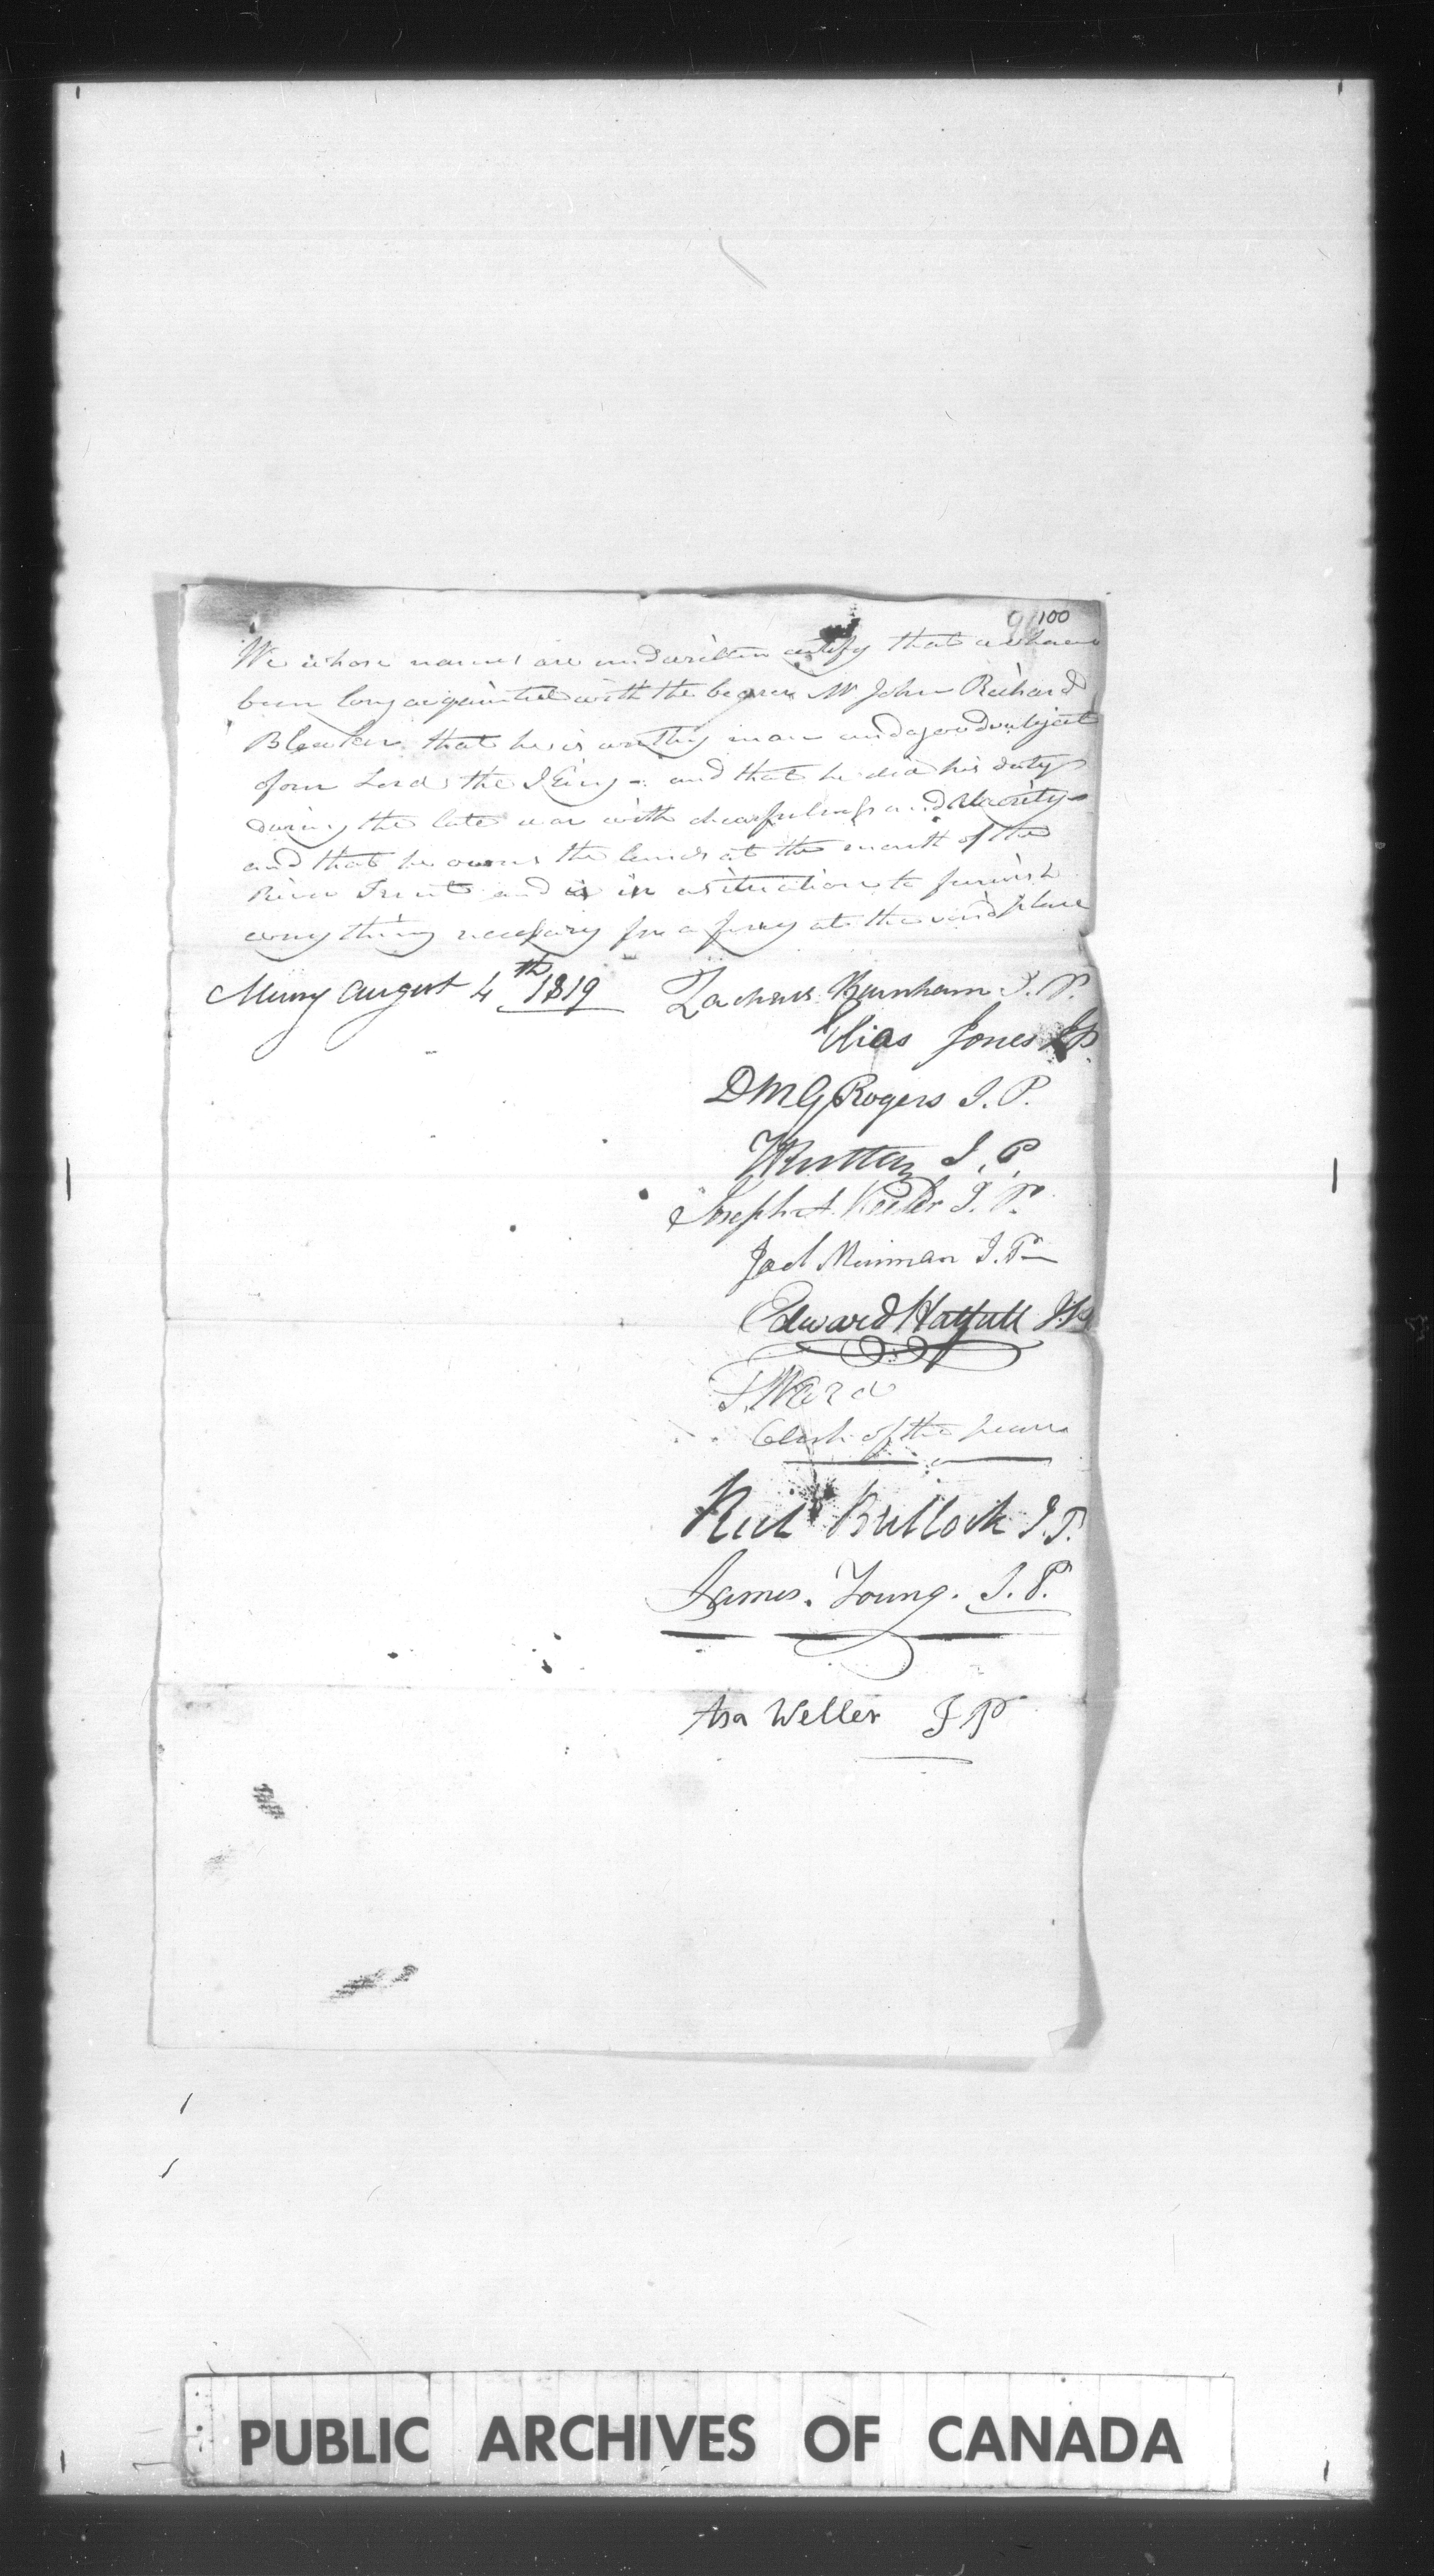 100
We whose names are underwritten certify that we have
been long acquainted with the bearer Mr John Richard
Bleaker that he is a worthy man and a good subject
of our Lord the King - and that he did his duty
during the late war with chearfulness and Alacrity -
and that he owns the lands at the mouth of the
River Trent and is in a situation to furnish
every thing necessary for a ferry at the said place
Murray August 4th 1819
Zacheus Burnham J. P.
Elias Jones JP
D M G Rogers J. P.
WRuttan J. P.
Joseph A. Keeler J. P.
Joel Merriman J. P
Edward Hatfull J.P
T. Ward
Clerk of the peace
Richd Bullock J. P.
James. Young. J. P.
Asa Weller J P
PUBLIC ARCHIVES OF CANADA